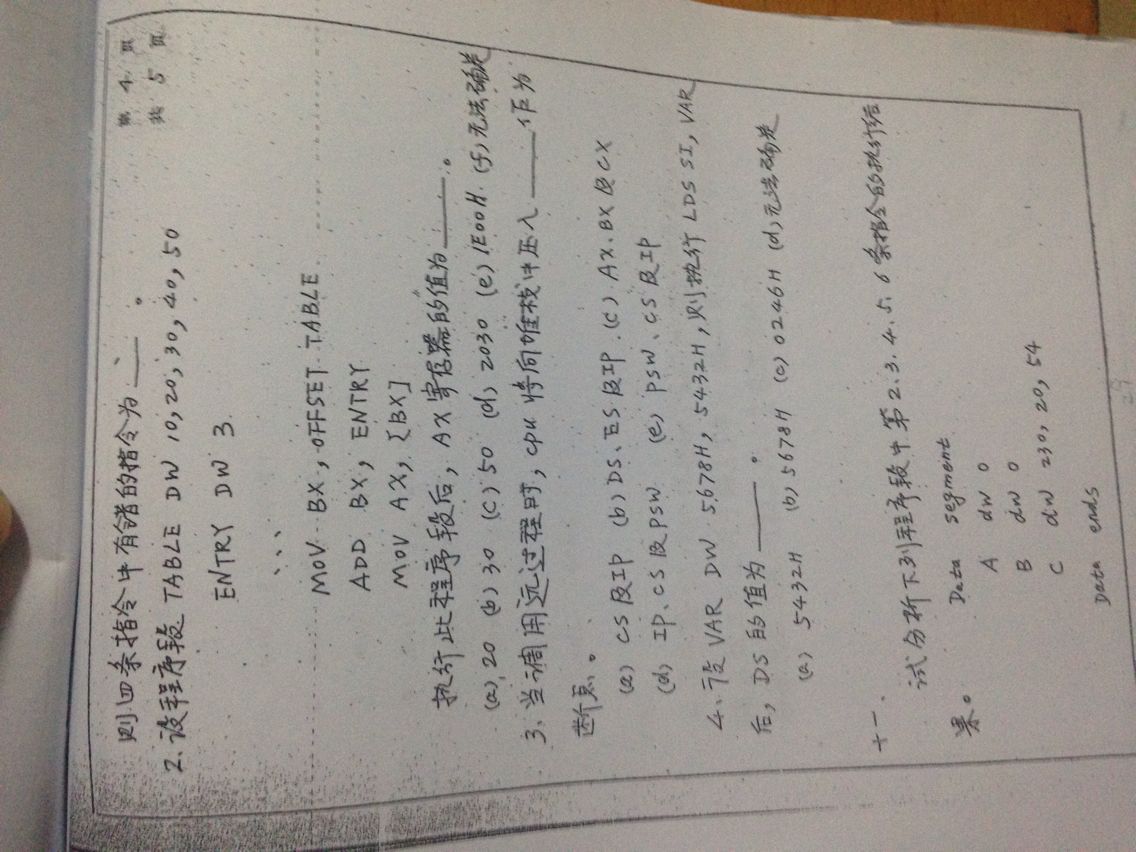 第 4 页
共 5 页
则四条指令中有错的指令为____。
2.设程序段 TABLE DW 10,20,30,40,50
ENTRY DW 3
...
MOV BX,OFFSET TABLE
ADD BX,ENTRY
MOV AX,[BX]
执行此程序段后,AX寄存器的值为____。
(a)20 (b)30 (c)50 (d)2030 (e)1E00H (f)无法确定
3.当调用远过程时,cpu将向堆栈中压入____作为
断点。
(a) CS及IP (b)DS、ES及IP (c) AX、BX及CX
(d) IP、CS及PSW (e) PSW、CS及IP
4、设VAR DW 5678H,5432H,则执行LDS SI,VAR
后,DS的值为____。
(a) 5432H (b)5678H (c)0246H (d)无法确定
十一、
试分析下列程序段中第2.3.4.5.6条指令的执行结
果。
Data segment
A dw 0
B dw 0
C dw 230,20,54
Data ends